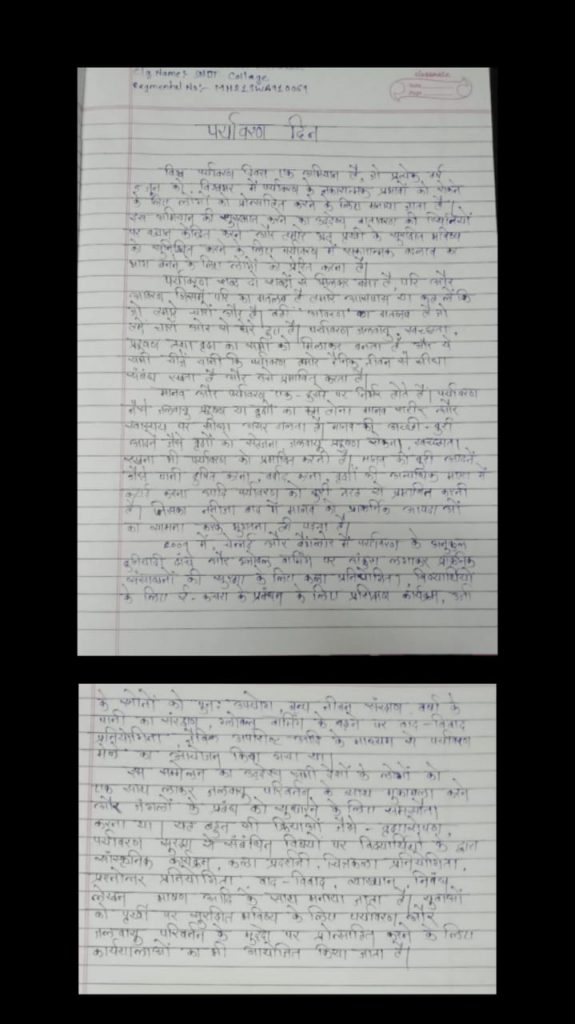 Clg Name: SNDT College
Regmental No:-
classmate
Date
Page
पर्यावरण दिन
विश्व पर्यावरण दिवस एक अभियान है, जो प्रत्येक वर्ष
5 जून को, विश्वभर में पर्यावरण के नकारात्मक प्रभावों को रोकने
के लिए लोगों को प्रोत्साहित करने के लिए मनाया जाता है।
इस अभियान की शुरुआत करने का उद्देश्य वातावरण की स्थितियों
पर ध्यान केन्द्रित करने और हमारे ग्रह पृथ्वी के सुरक्षित भविष्य
को सुनिश्चित करने के लिए पर्यावरण में सकारात्मक बदलाव का
भाग बनने के लिए लोगों को प्रेरित करना है।
पर्यावरण शब्द दो शब्दों से मिलकर बना है, परि और
आवरण जिसमें परि का मतलब है हमारे आसपास या कह लें कि
जो हमारे चारों ओर है। वहीं आवरण का मतलब है जो
हमें चारों ओर से घेरे हुए है। पर्यावरण जलवायु, स्वच्छता,
प्रदूषण तथा वृक्ष का सभी को मिलाकर बनता है, और ये
सभी चीजें यानी कि पर्यावरण हमारे दैनिक जीवन से सीधा
संबंध रखता है और उसे प्रभावित करता है।
मानव और पर्यावरण एक-दूसरे पर निर्भर होते हैं। पर्यावरण
जैसे जलवायु प्रदूषण या वृक्षों का कम होना मानव शरीर और
स्वास्थ्य पर सीधा असर डालता है। मानव की अच्छी-बुरी
आदतें जैसे वृक्षों को सहेजना जलवायु प्रदूषण रोकना, स्वच्छता
रखना भी पर्यावरण को प्रभावित करती है। मानव की बुरी आदतें
जैसे पानी दूषित करना, बर्बाद करना, वृक्षों की अत्यधिक मात्रा में
कटाई करना आदि पर्यावरण को बुरी तरह से प्रभावित करती
है। जिसका नतीजा बाद में मानव को प्राकृतिक आपदाओं
का सामना करके भुगतना ही पड़ता है।
2009 में चेन्नई और बैंगलोर में पर्यावरण के अनुकूल
बुनियादी ढांचे और ग्लोबल वार्मिंग पर अंकुश लगाकर प्राकृतिक
संसाधनों की सुरक्षा के लिए कला प्रतियोगिता, विद्यार्थियों
के लिए ई-कचरा के प्रबंधन के लिए प्रशिक्षण कार्यक्रम, ऊर्जा
के स्रोतों को पुनः उपयोग, वन्य जीवन संरक्षण वर्षा के
पानी का संरक्षण, ग्लोबल वार्मिंग के बढ़ने पर वाद-विवाद
प्रतियोगिता, जैविक अपशिष्ट आदि के माध्यम से पर्यावरण
मेले का आयोजन किया गया था।
इस सम्मेलन का उद्देश्य सभी देशों के लोगों को
एक साथ लाकर जलवायु परिवर्तन के साथ मुकाबला करने
और जंगलों के प्रबंध को सुधारने के लिए समझौता
करना था। यह बहुत सी क्रियाओं जैसे - वृक्षारोपण,
पर्यावरण सुरक्षा से संबंधित विषयों पर विद्यार्थियों के द्वारा
सांस्कृतिक कार्यक्रम, कला प्रदर्शनी, चित्रकला प्रतियोगिता,
प्रश्नोत्तर प्रतियोगिता, वाद-विवाद, व्याख्यान, निबंध
लेखन भाषण आदि के साथ मनाया जाता है। युवाओं
को पृथ्वी पर सुरक्षित भविष्य के लिए पर्यावरण और
जलवायु परिवर्तन के मुद्दों पर प्रोत्साहित करने के लिए
कार्यशालाओं का भी आयोजित किया जाता है।